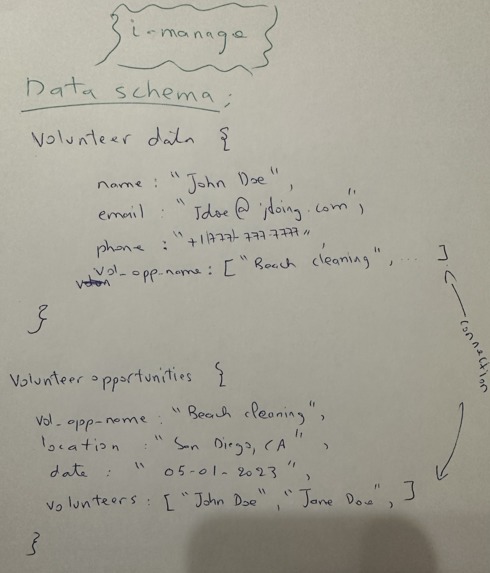 i-manage
Data schema:
Volunteer data {
name : "John Doe",
email : "Jdoe@jdoing.com",
phone : "+1(777)-777-7777"
vol-opp-name : ["Beach cleaning", ... ]
}
connection
Volunteer opportunities {
vol-opp-name : "Beach cleaning",
location : "San Diego, CA",
date : "05-01-2023",
volunteers : ["John Doe", "Jane Doe", ]
}